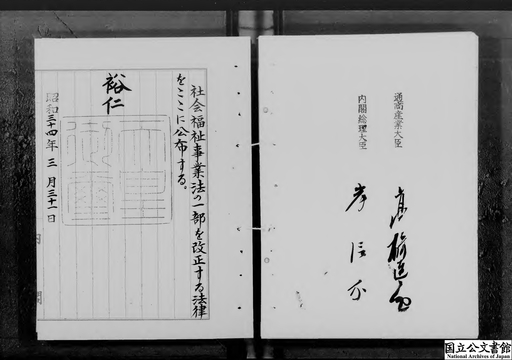 通商産業大臣
内閣総理大臣
岸信介
社会福祉事業法の一部を改正する法律
をここに公布する。
裕仁
昭和三十四年三月三十一日
国立公文書館
National Archives of Japan